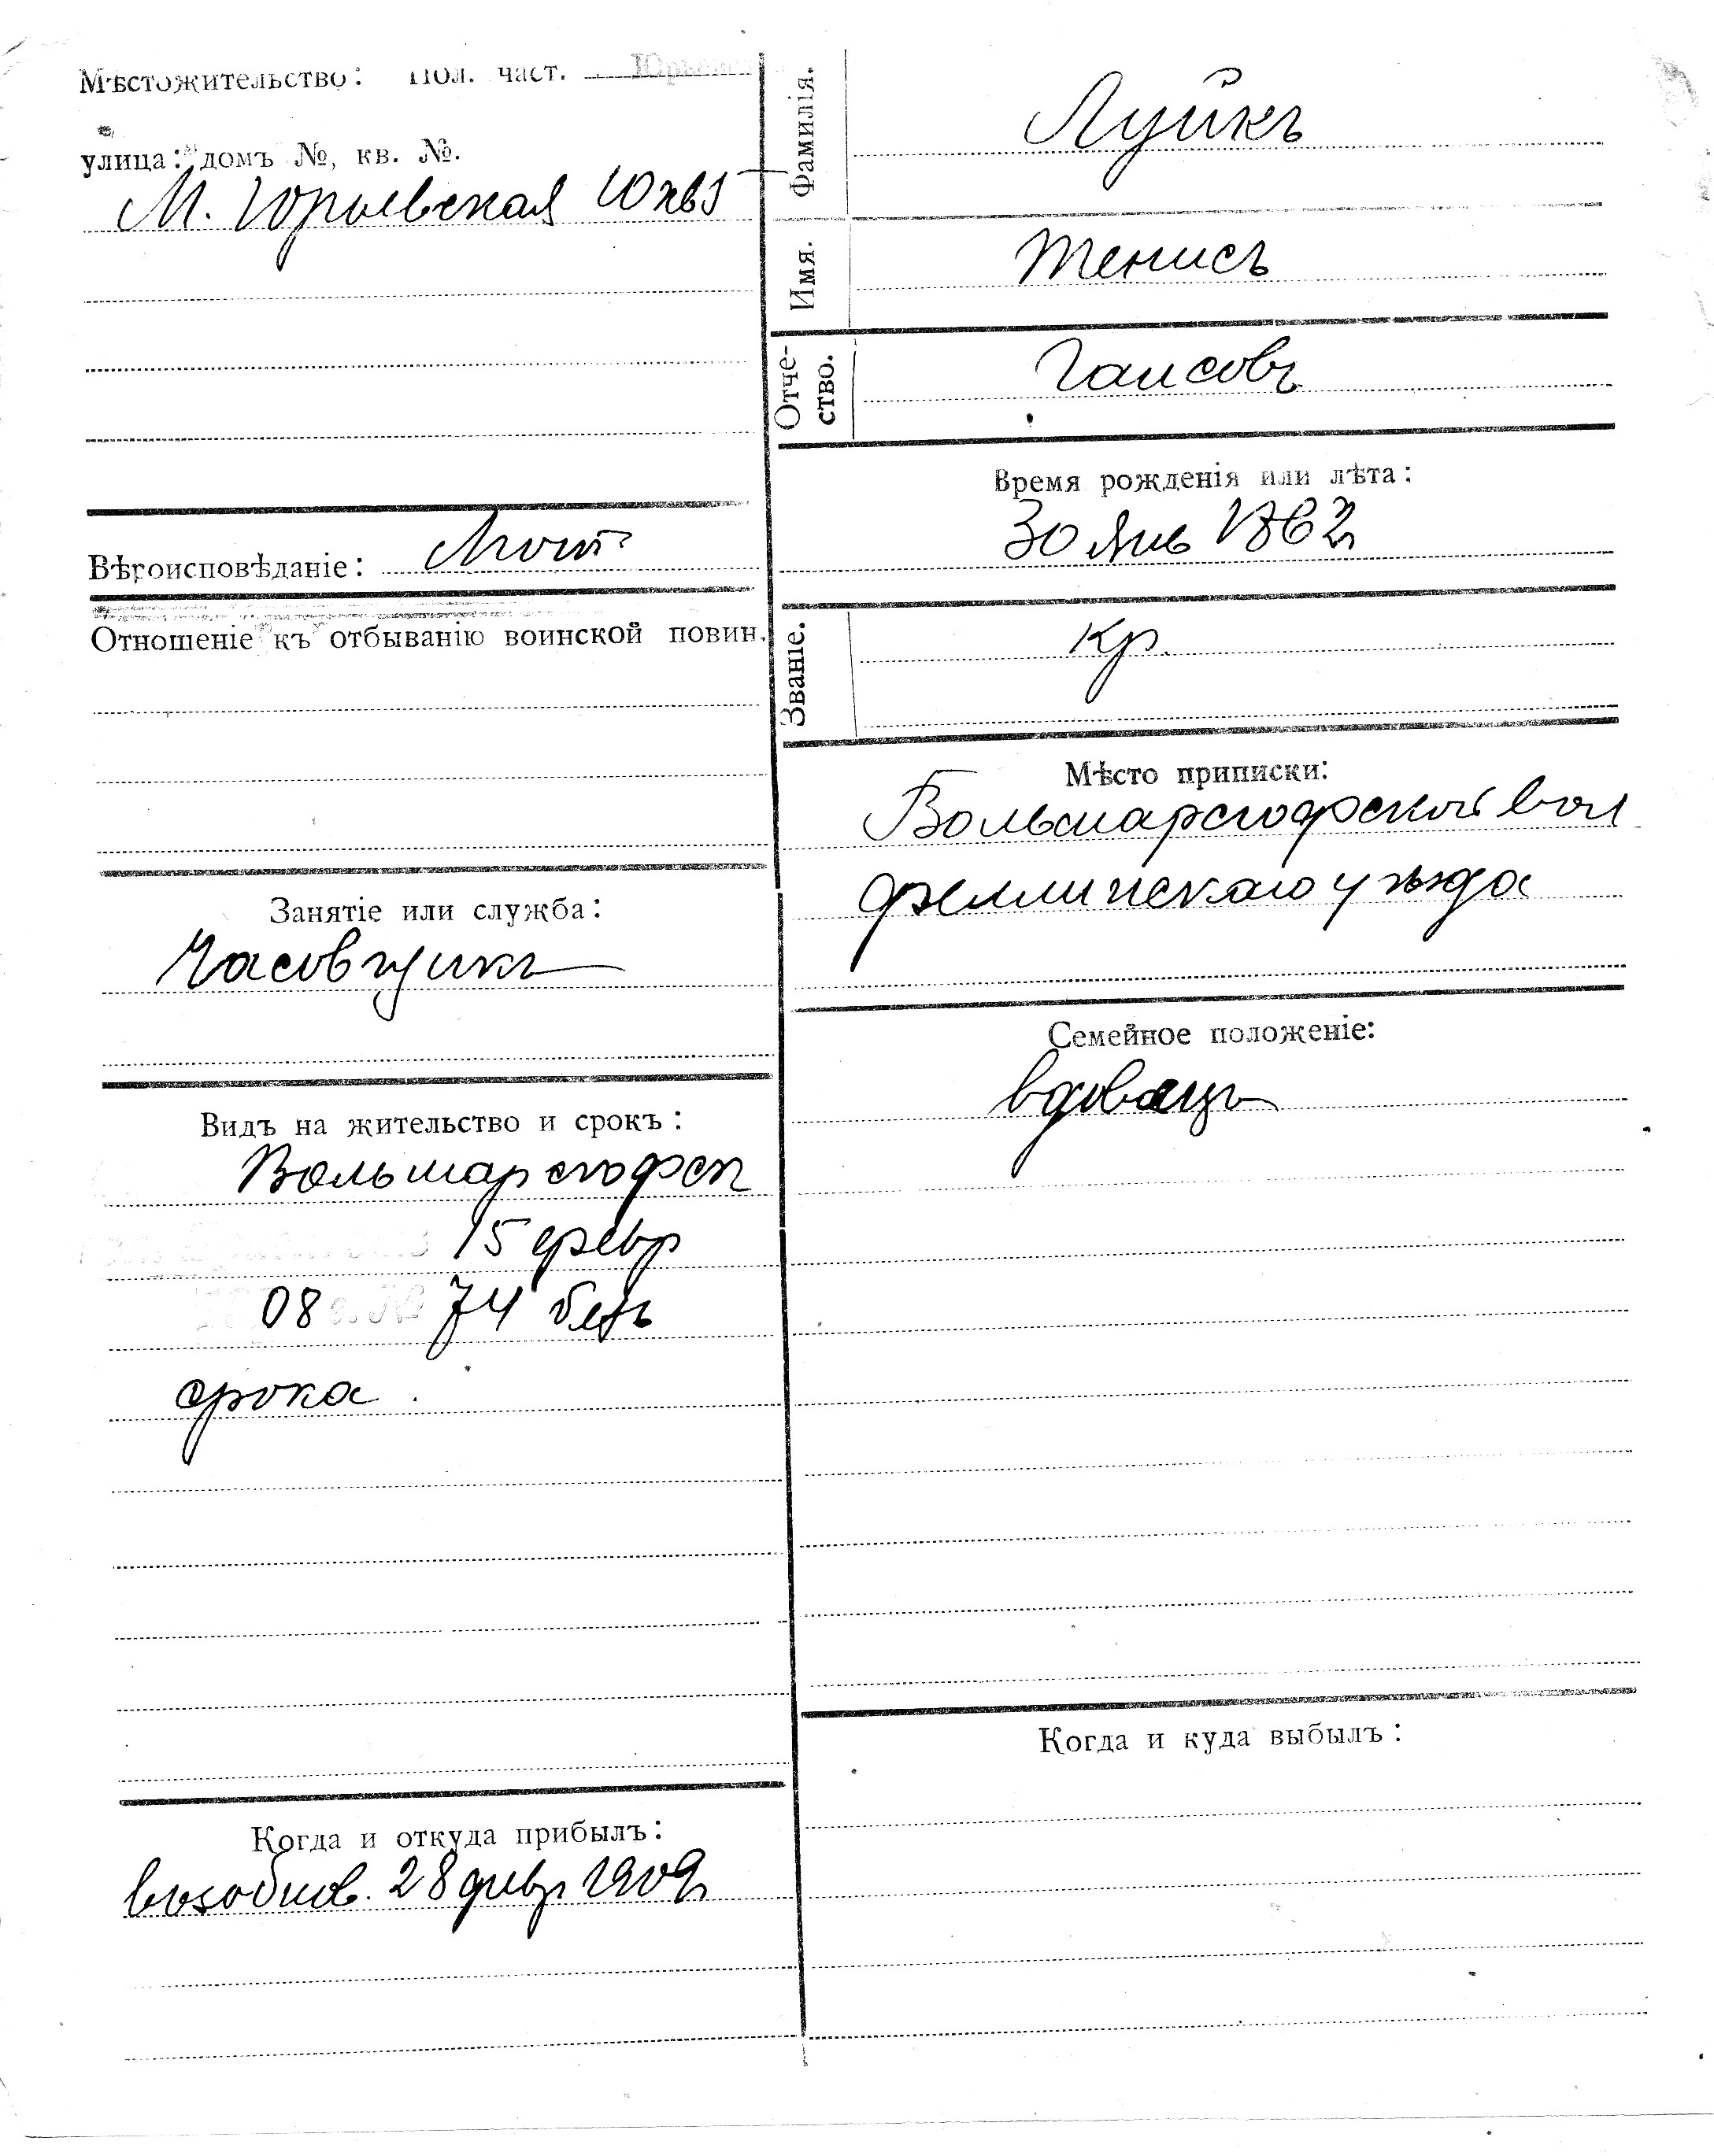 Мѣстожительство: Пол. част. Юрьевск
улица: домъ №, кв. №.
М. Юрьевская 10 кв 1
Вѣроисповѣданіе: Лют
Отношеніе къ отбыванію воинской повин.
Занятіе или служба:
Часовщикъ
Видъ на жительство и срокъ:
Вольмарсгофск
15 февр
08 г. № 74 безъ
срока.
Когда и откуда прибылъ:
возобнов. 28 февр 1909
Фамилія. Луйкъ
Имя. Тенисъ
Отче-
ство. Гансовъ
Время рожденія или лѣта:
30 Янв 1862
Званіе. кр.
Мѣсто приписки:
Вольмарсгофской вол
Феллинскаго уѣзда
Семейное положеніе:
вдовецъ
Когда и куда выбылъ: